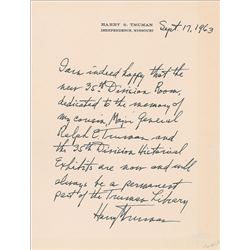 HARRY S. TRUMAN
INDEPENDENCE, MISSOURI
Sept. 17, 1963
I am indeed happy that the
new 35th Division Room,
dedicated to the memory of
my cousin, Major General
Ralph E. Truman and
the 35th Division Historical
Exhibits are now and will
always be a permanent
part of the Truman Library
Harry Truman